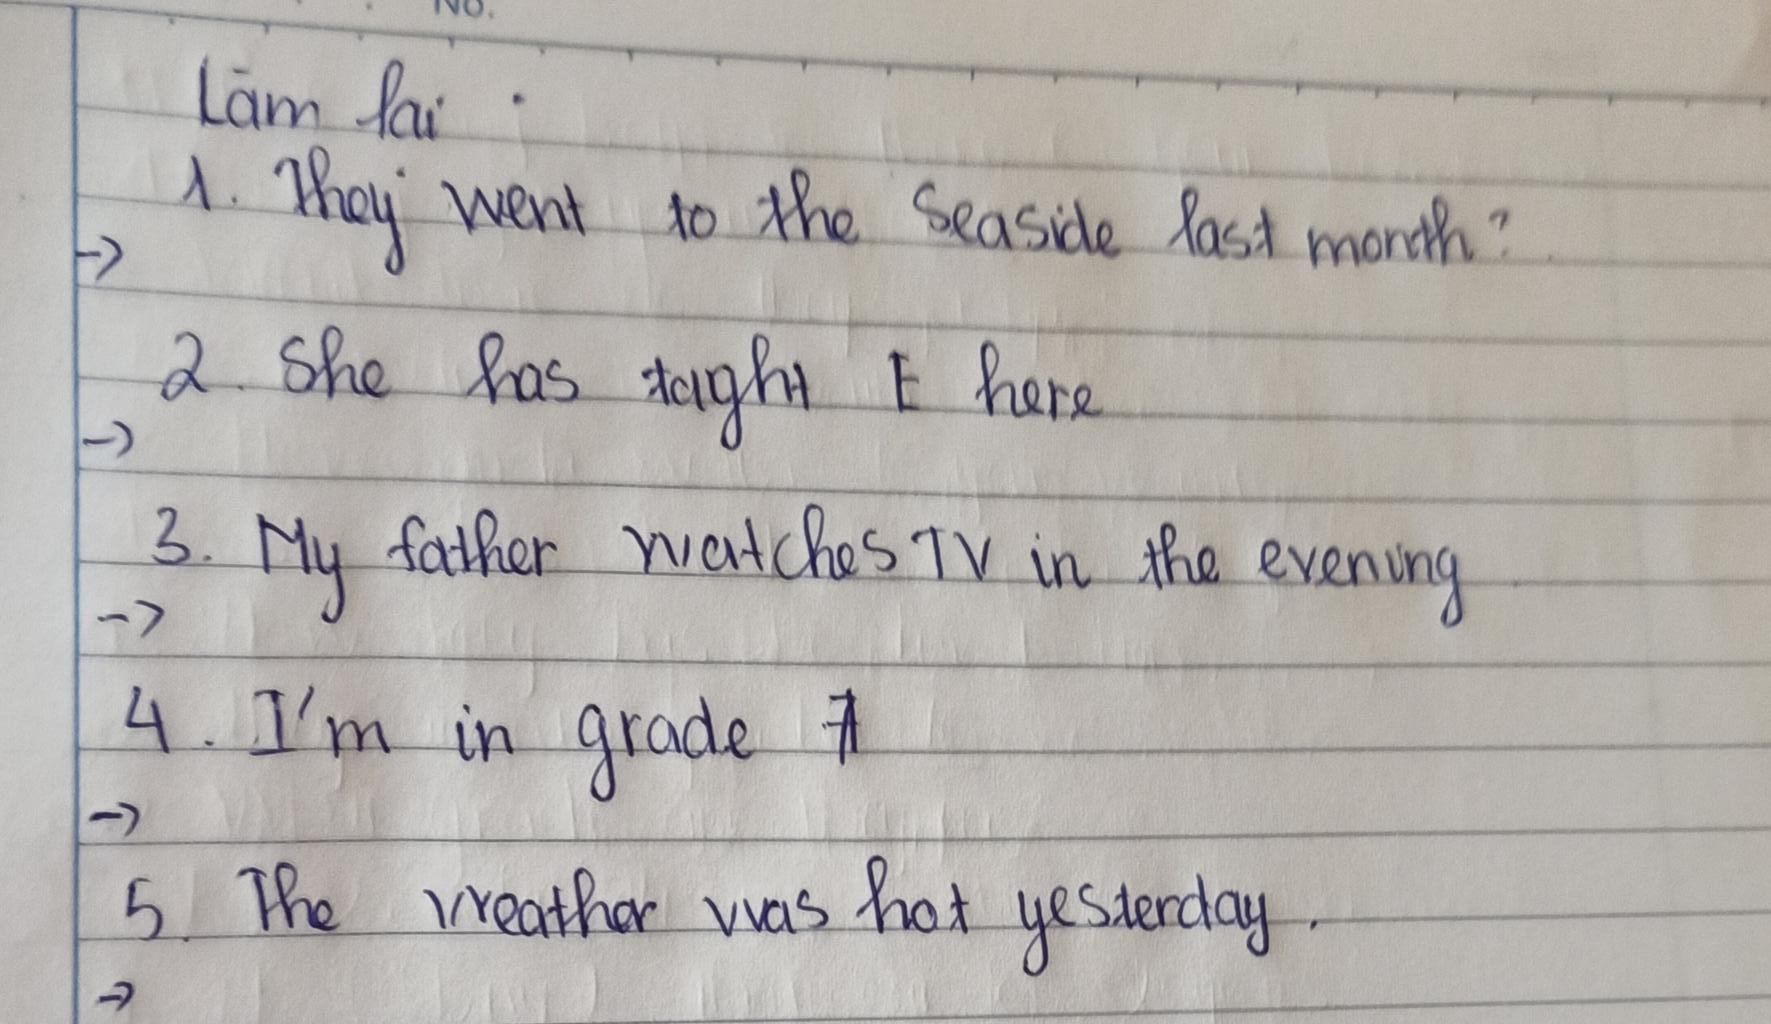 No.
Làm lại :
1. They went to the seaside last month?
->
2. She has taght E here
->
3. My father watches TV in the evening
->
4. I'm in grade 7
->
5. The weather was hot yesterday.
->